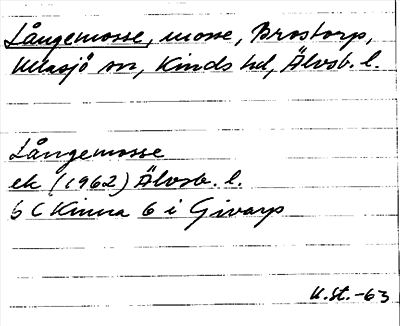 Långemosse, mosse, Brostorp,
Mjasjö sn, Kinds hd, Älvsb. l.
Långemosse
ek (1962) Älvsb. l.
6 C Kinna 6 i Givarp
U.St.-63